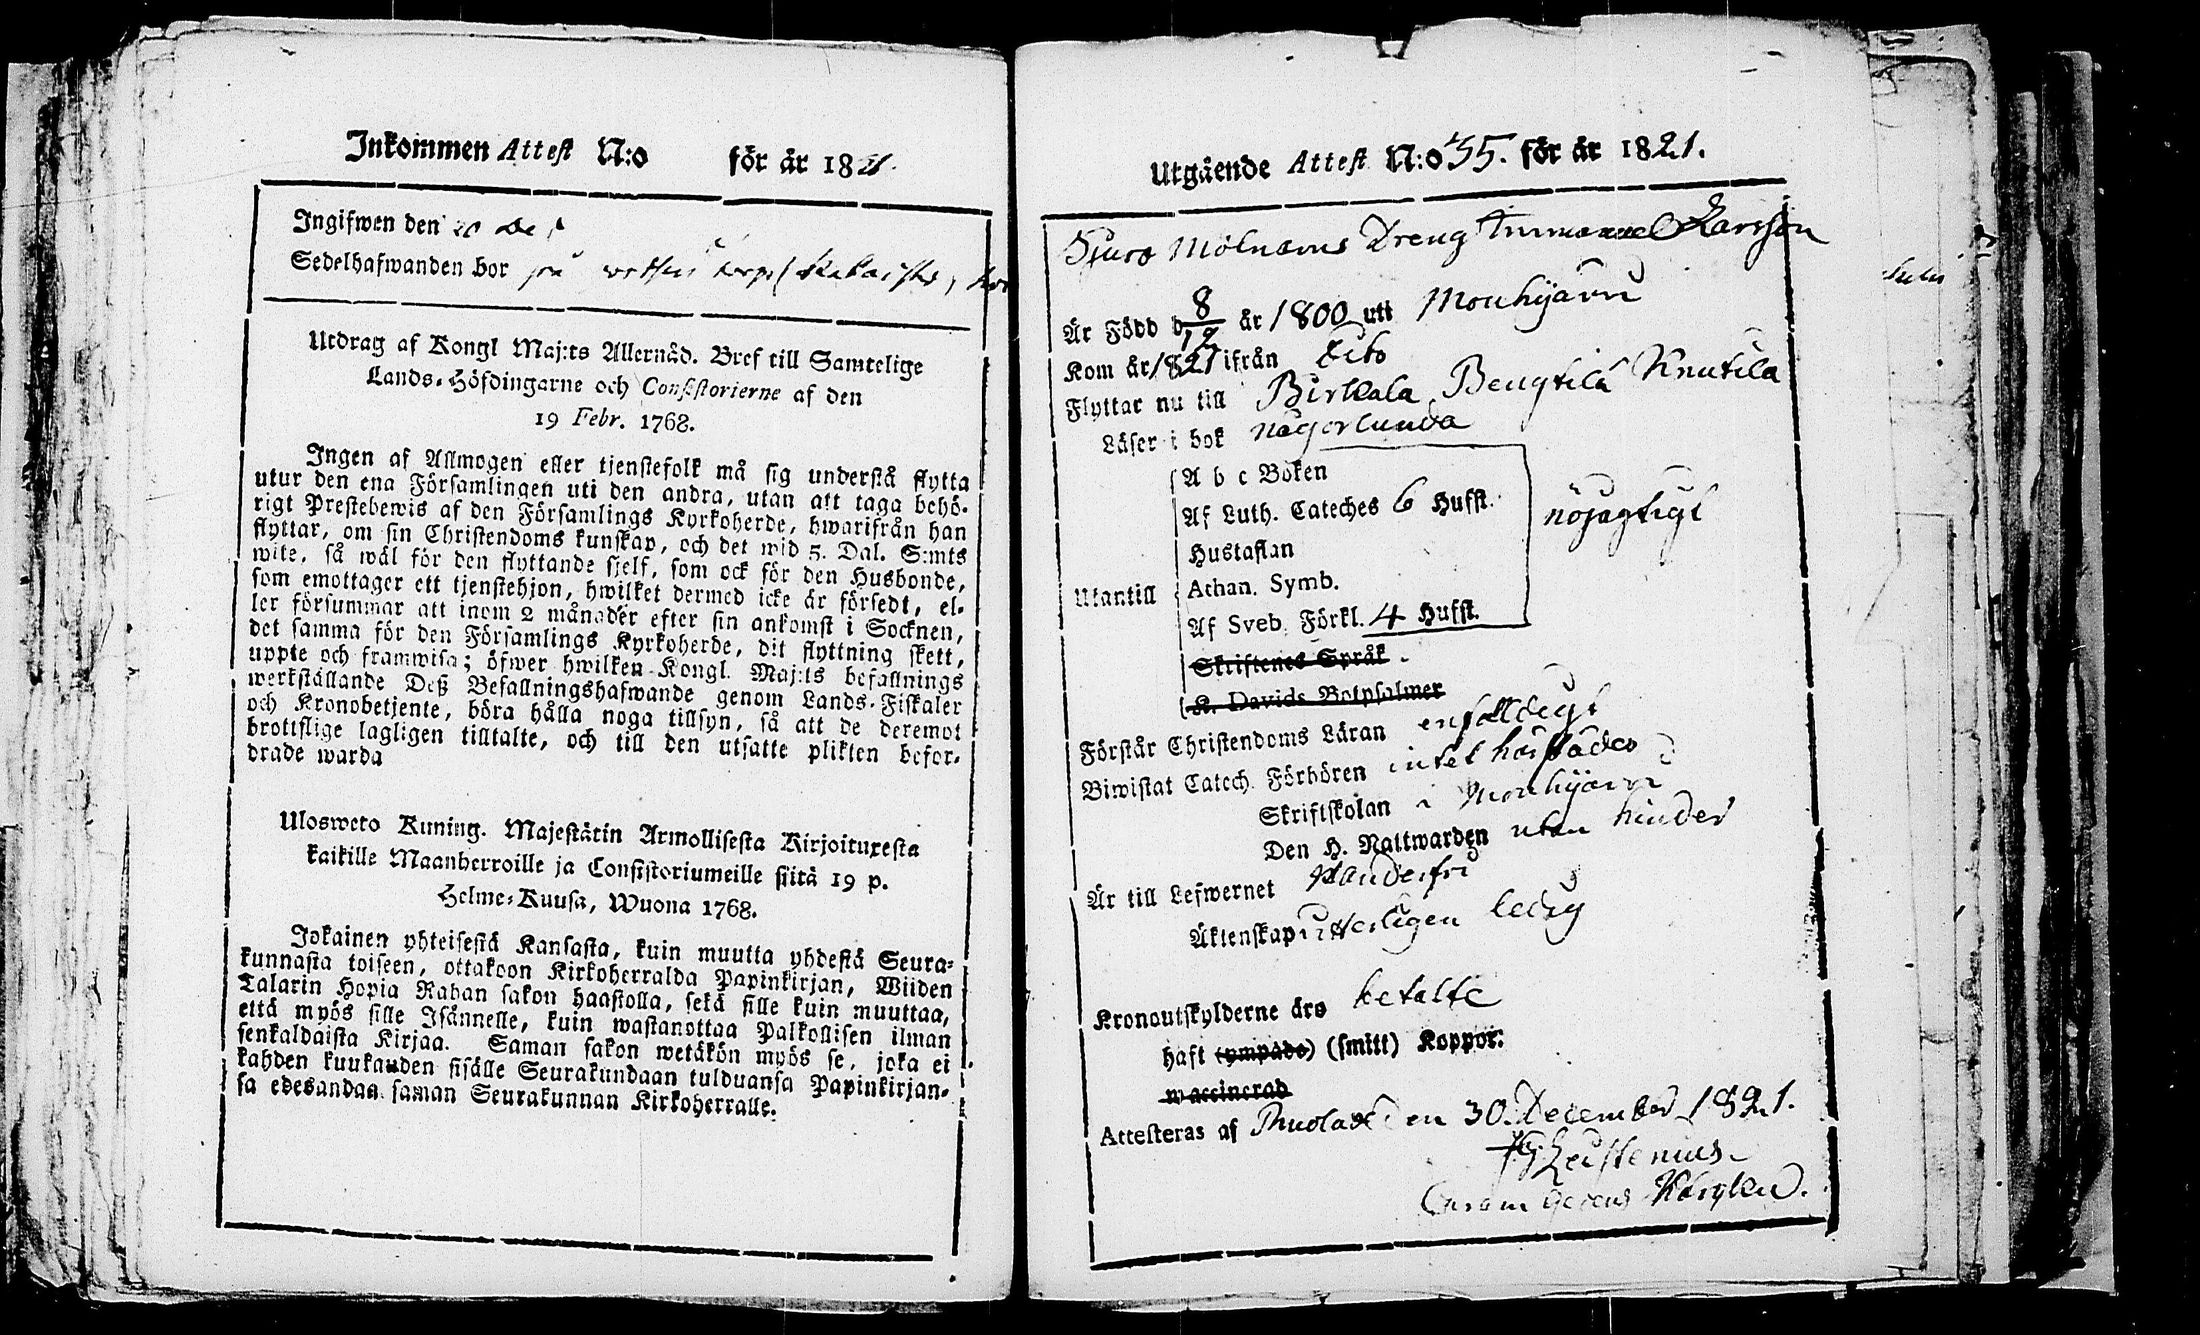 Inkommen Attest N:o för år 1821.
Ingifwen den 20 De
Sedelhafwanden bor på
Utdrag af Kongl Maj:ts Allernåd. Bref till Samtelige
Lands-Höfdingarne och Consistorierne af den
19 Febr. 1768.
Ingen af Allmogen eller tjenstefolk må sig understå flytta
utur den ena Församlingen uti den andra, utan att taga behö-
rigt Prestebewis af den Församlings Kyrkoherde, hwarifrån han
flyttar, om sin Christendoms kunskap, och det wid 5. Dal. S:mts
wite, så wäl för den flyttande sjelf, som ock för den Husbonde,
som emottager ett tjenstehjon, hwilket dermed icke är försedt, el-
ler försummar att inom 2 månader efter sin ankomst i Socknen,
det samma för den Församlings Kyrkoherde, dit flyttning skett,
uppte och framwisa; öfwer hwilken Kongl. Maj:ts befallnings
werkställande Deß Befallningshafwande genom Lands-Fiskaler
och Kronobetjente, böra hålla noga tillsyn, så att de deremot
brottslige lagligen tilltalte, och till den utsatte plikten befor-
drade warda
Ulosweto Kuning. Majestätin Armollisesta Kirjoituxesta
kaikille Maanherroille ja Consistoriumeille siitä 19 p.
Helme-Kuusa, Wuona 1768.
Jokainen yhteisestä Kansasta, kuin muutta yhdestä Seura-
kunnasta toiseen, ottakoon Kirkoherralda Papinkirjan, Wiiden
Talarin Hopia Rahan sakon haastolla, sekä sille kuin muuttaa,
että myös sille Isännelle, kuin wastanottaa Palkollisen ilman
senkaldaista Kirjaa. Saman sakon wetäkön myös se, joka ei
kahden kuukauden sisälle Seurakundaan tulduansa Papinkirjan-
sa edesandaa saman Seurakunnan Kirkoherralle.
Utgående Attest N:o 35. för år 1821.
Sjuro Mölnarns Dreng Immanuel Larsson
Är Född d 8/12 år 1800 uti Mouhijärvi
Kom år 1821 ifrån dito
Flyttar nu till Birkala Bengtilä Knutila
Läser i bok någorlunda
A b c Boken
Af Luth. Cateches 6 Hufst. nöjagtigt
Hustaflan
Utantill Athan. Symb.
Af Sveb. Förkl. 4 Hufst.
Skriftenes Språk
K. Davids Botpsalmer
Förstår Christendoms Läran enfaldigt
Biwistat Catech. Förhören intet härstädes
Skriftskolan i Mouhijärvi
Den H. Nattwarden utan hinder
Är till Lefwernet klanderfri
Äktenskap witterligen ledig
Kronoutskylderne äro betalte
haft (ympade) (smitt) Koppor.
waccinerad
Attesteras af den 30. December 1821.